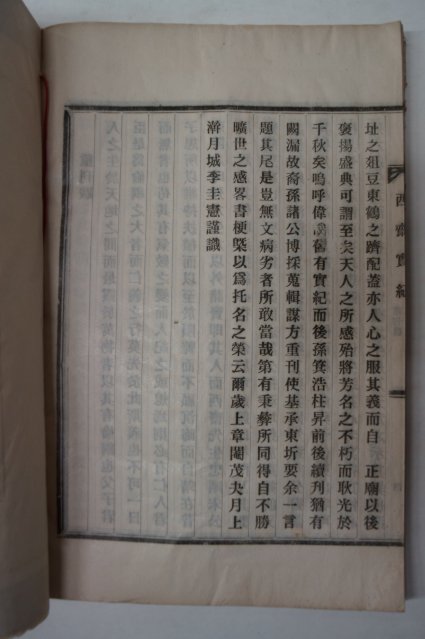 西齋實紀
址之俎豆東鶴之躋配蓋亦人心之服其義而自 正廟以後
褒揚盛典可謂至矣天人之所感殆將芳名之不朽而耿光於
千秋矣嗚呼偉哉舊有實紀而後孫箕浩柱昇前後續刊猶有
闕漏故裔孫諸公博採蒐輯謀方重刊使基承東圻要余一言
題其尾是豈無文病劣者所敢當哉第有秉彝所同得自不勝
曠世之感畧書梗槩以爲托名之榮云爾歲上章閹茂夬月上
澣月城季圭憲謹識